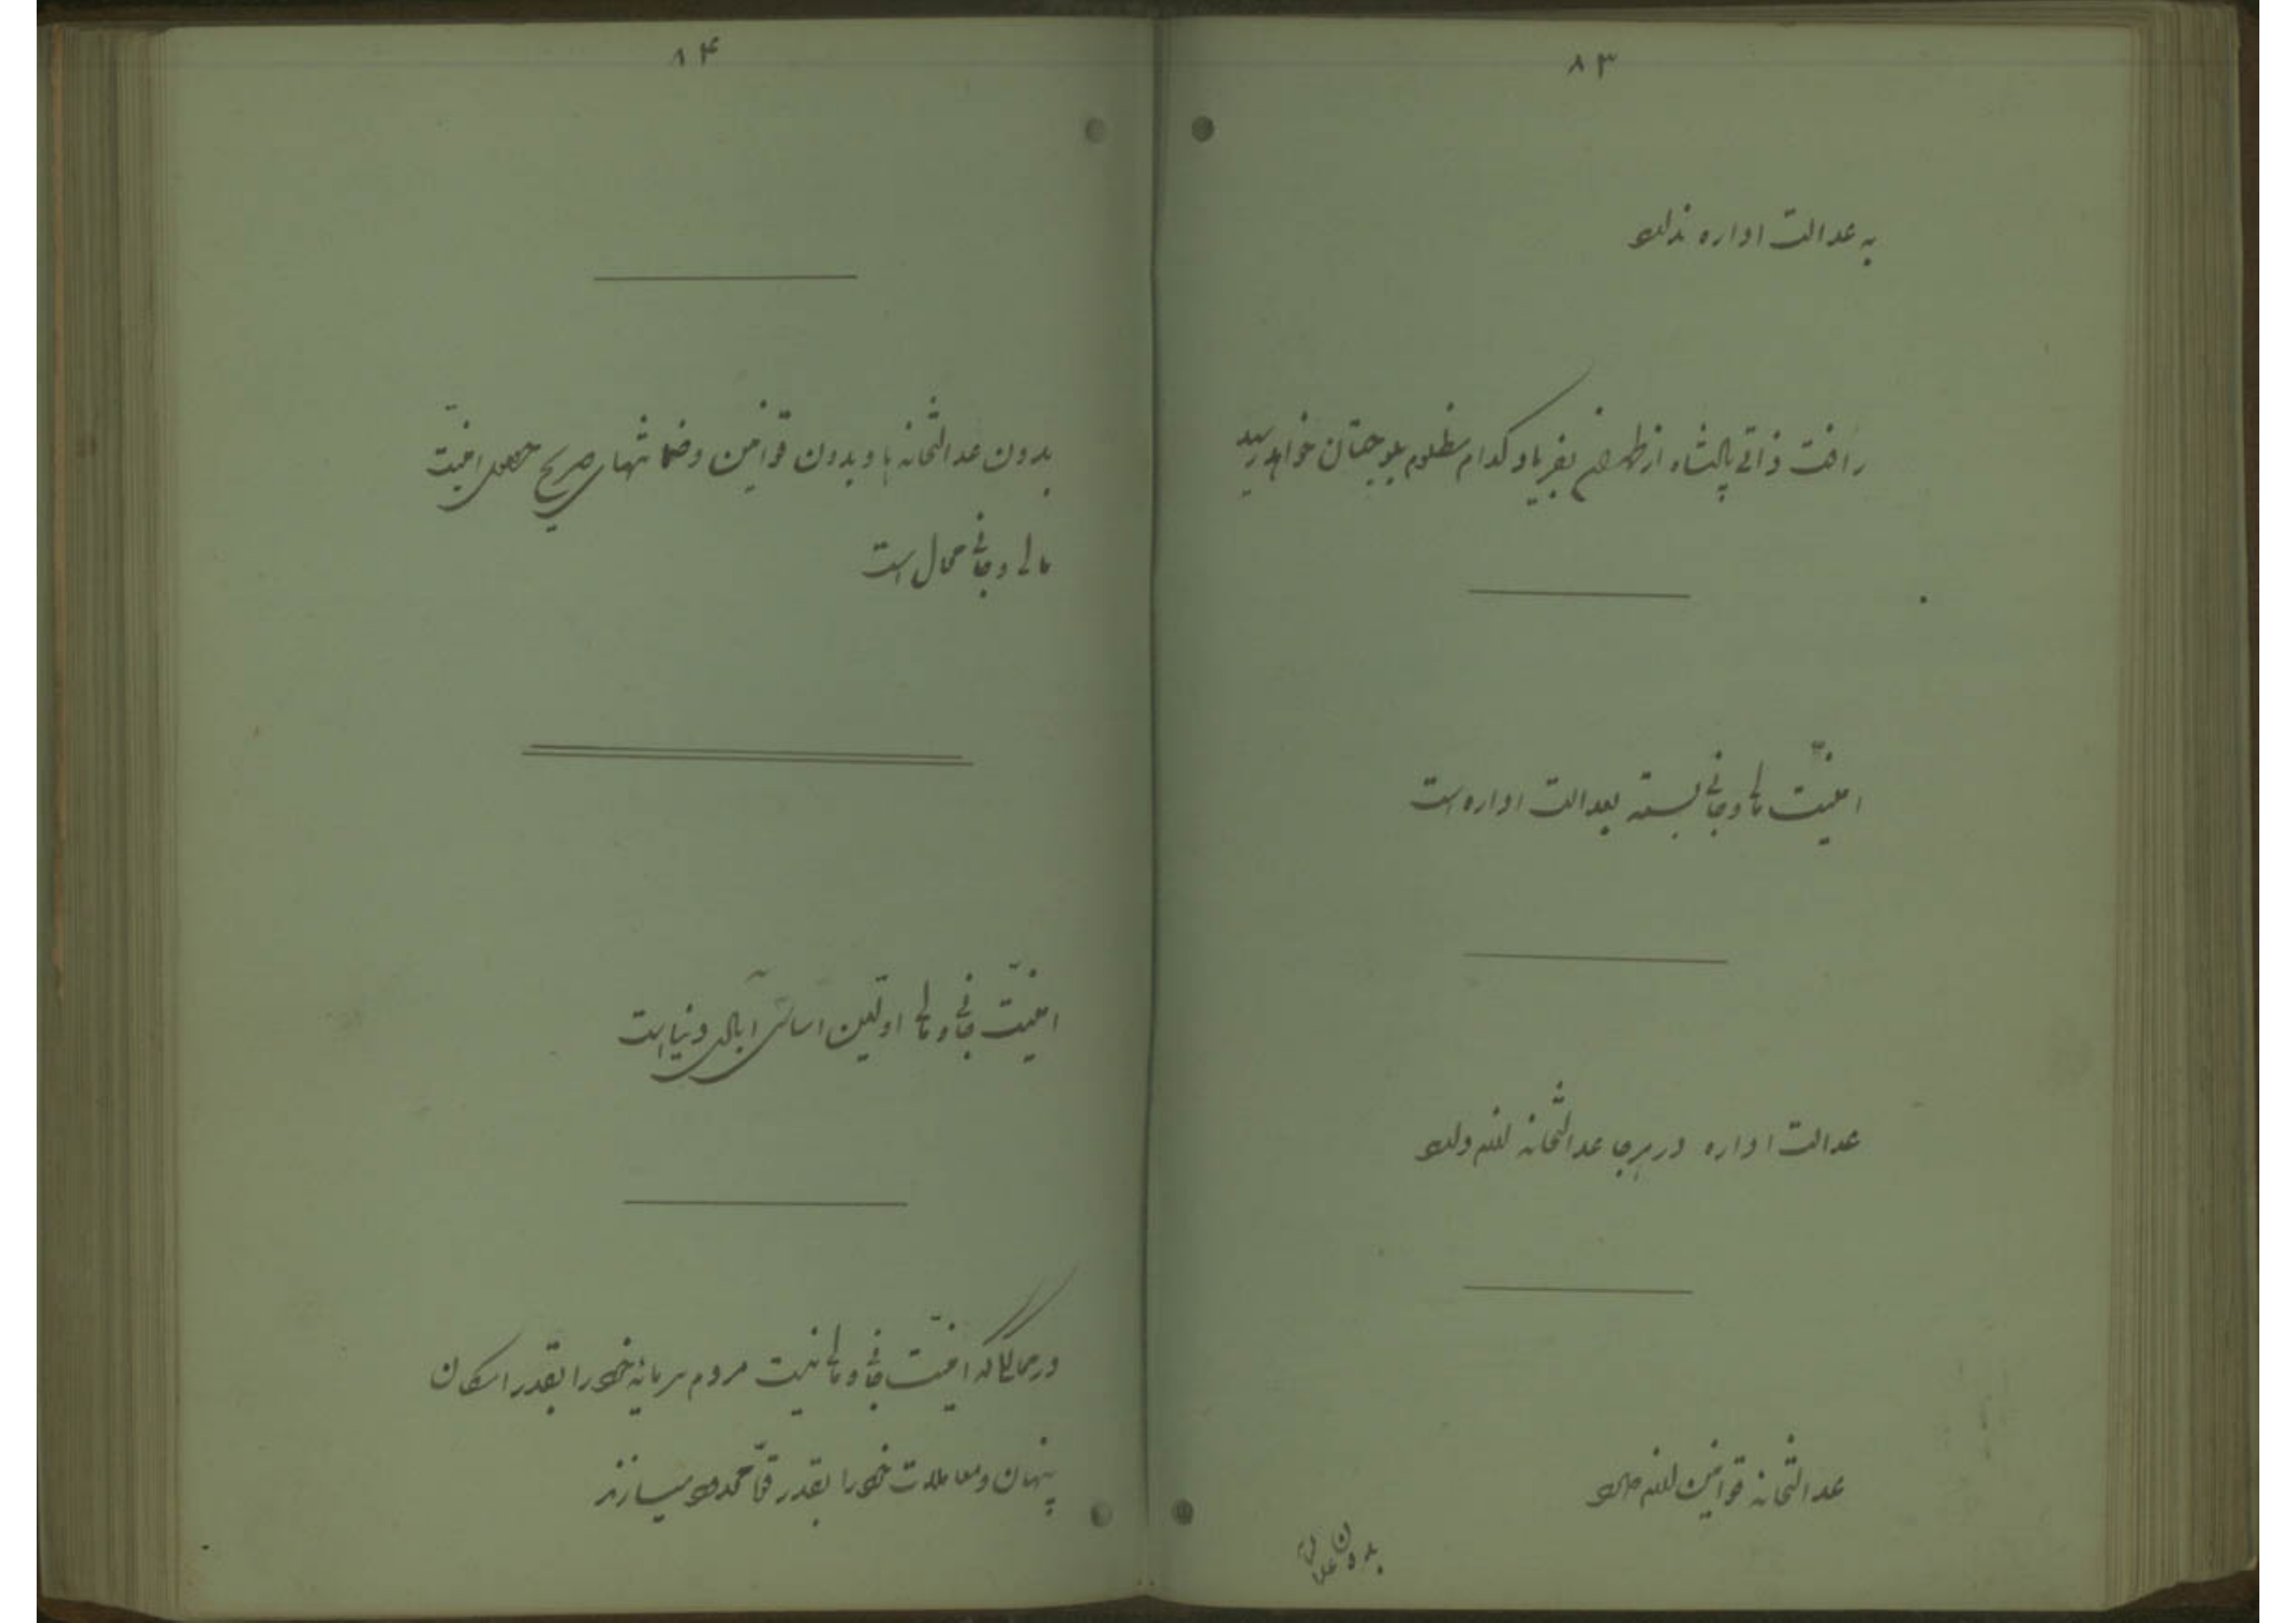 ۸۳
به عدالت اداره ندارد
رافت ذاتی پادشاه از طهران بفریاد کدام مظلوم بلوچستان خواهد رسید
امنیّت مالی و جانی بسته بعدالت اداره است
عدالت اداره در هرجا عدالتخانه لازم دارد
عدالتخانه قوانین لازم دارد
بدون
۸۴
بدون عدالتخانه ها و بدون قوانین و ضمانتهای صریح حصول امنیّت
مالی و جانی محال است
امنیّت جانی و مالی اوّلین اساس آبادی دنیا است
در ممالکی که امنیّت جانی و مالی نیست مردم سرمایهٔ خود را بقدر امکان
پنهان و معاملات خود را بقدر قوّه محدود میسازند